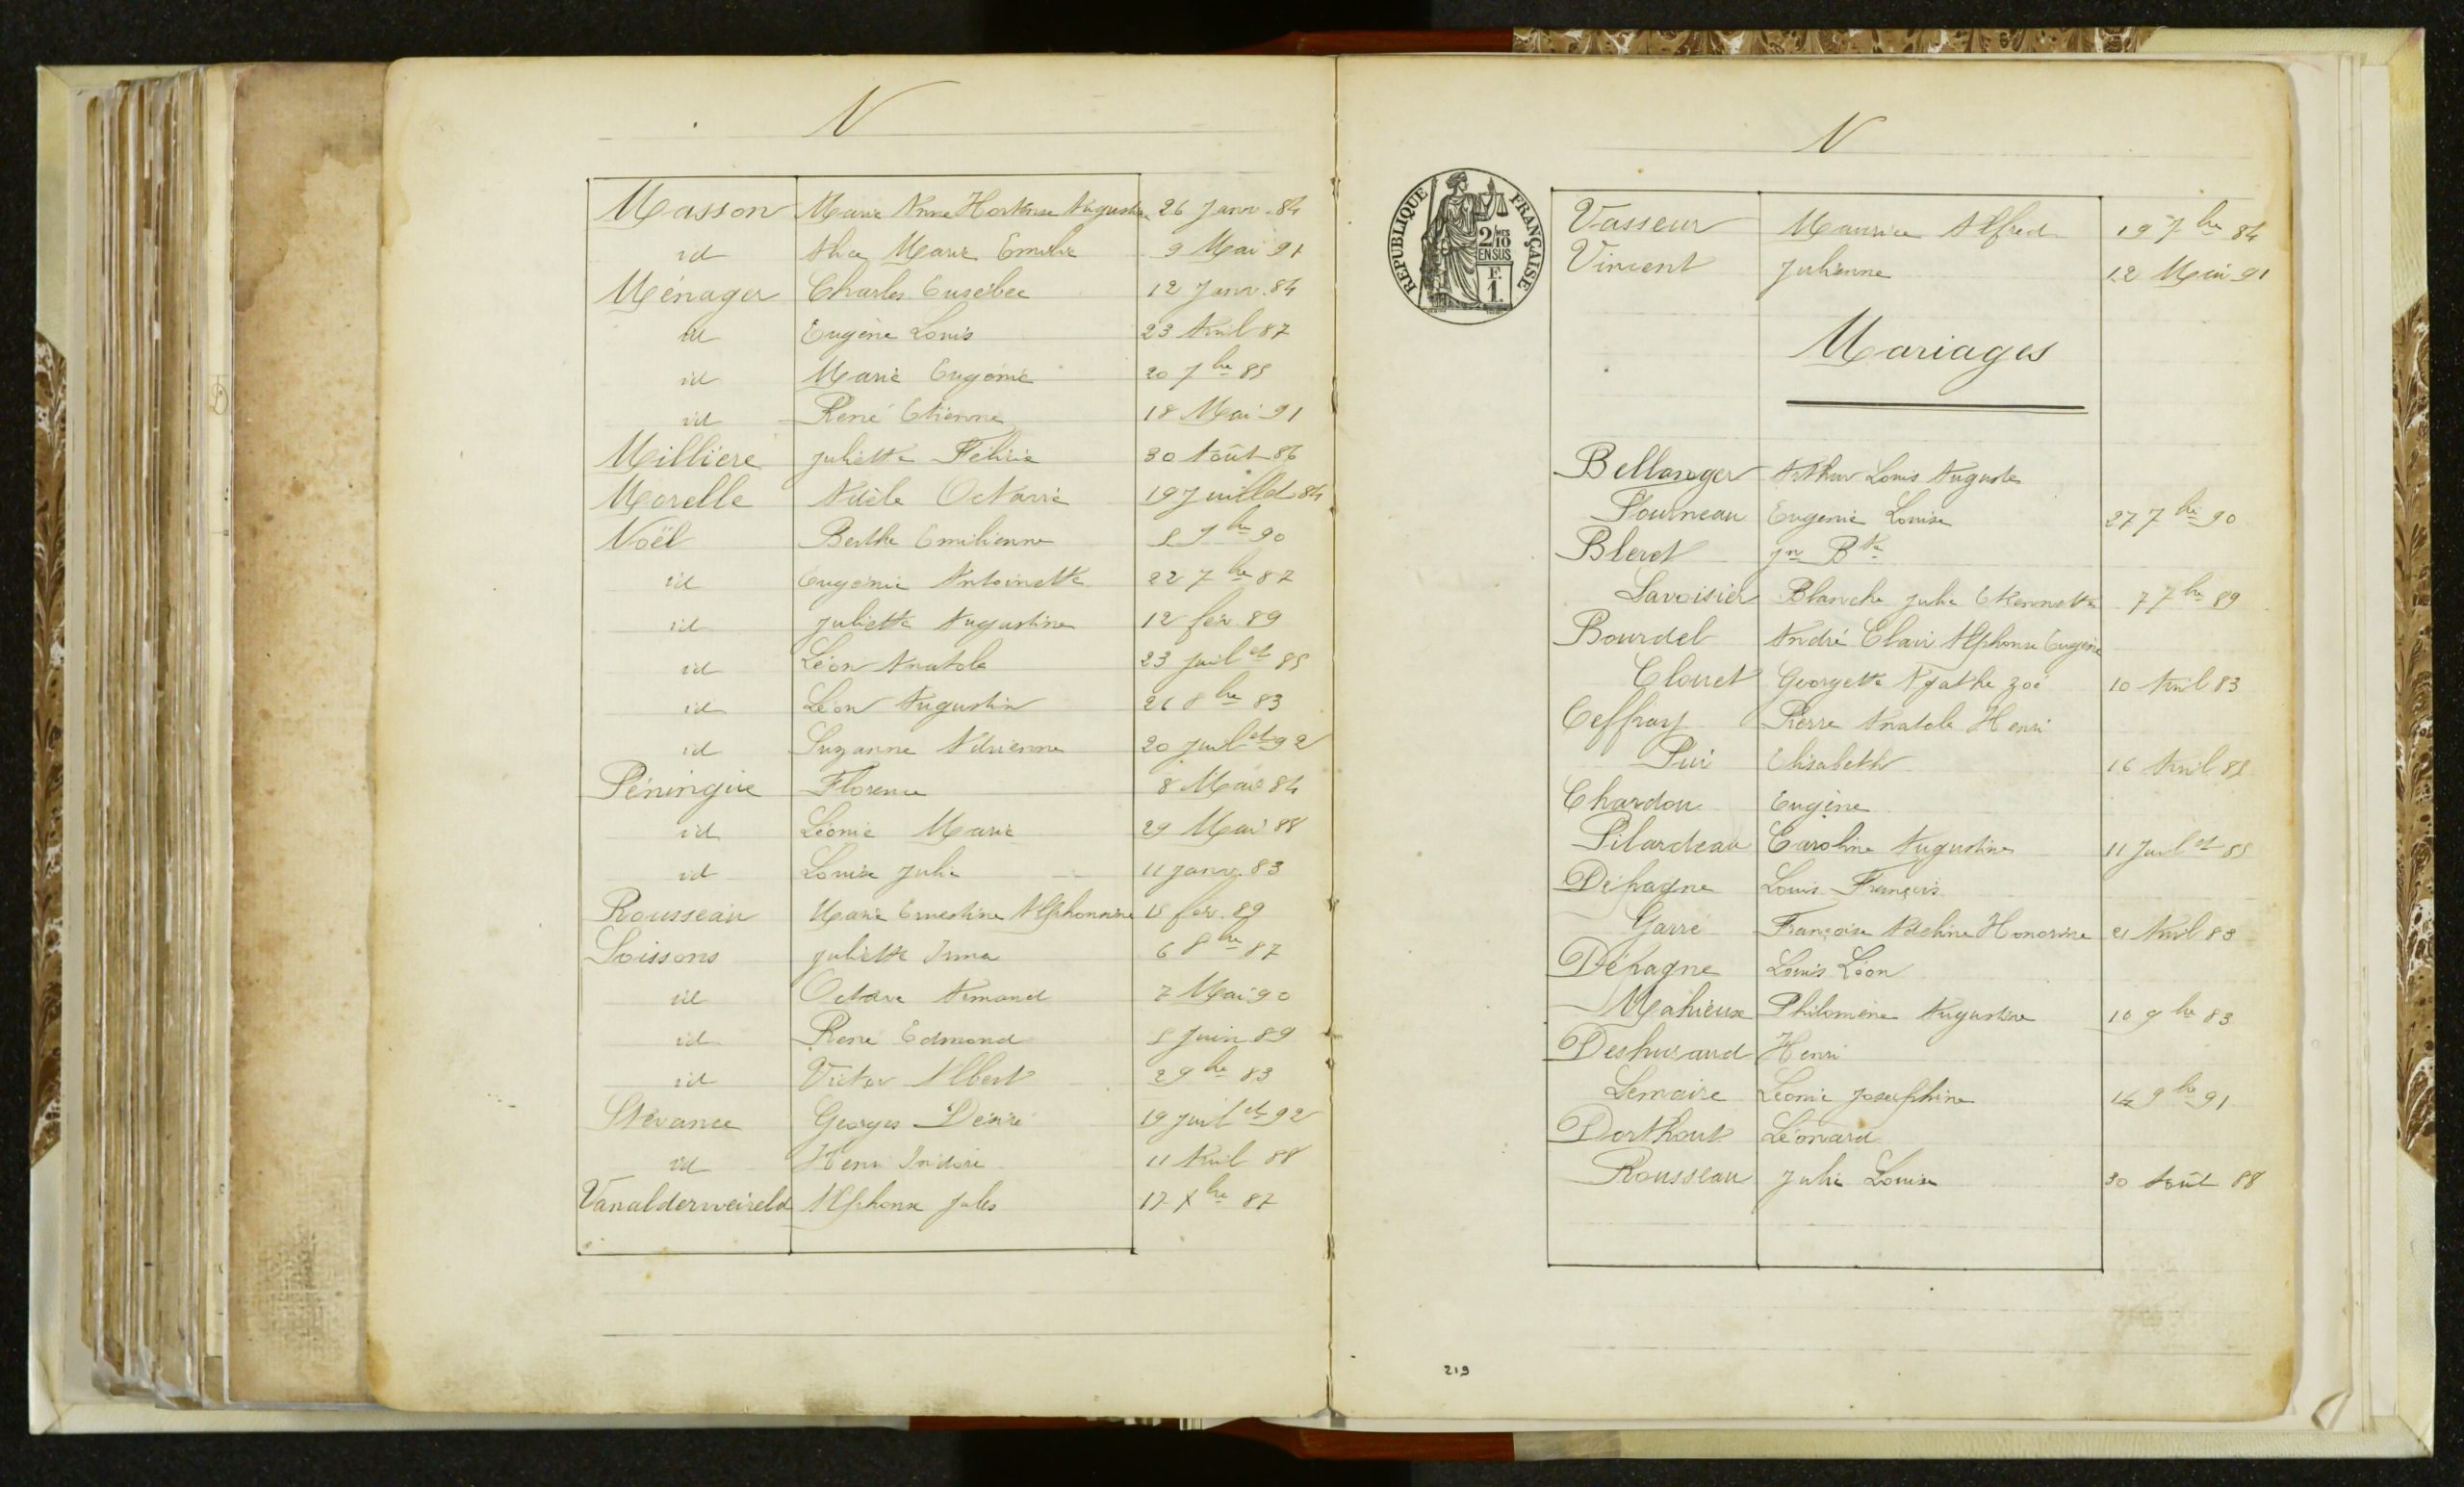 N
Masson Marie Anne Hortense Augustine 26 Janv. 84
id Alice Marie Emilie 9 Mai 91
Ménager Charles Eusèbee 12 Janv. 84
id Eugène Louis 23 Avril 87
id Marie Eugénie 20 7bre 85
id René Etienne 18 Mai 91
Milliere Juliette Félicie 30 Août 86
Morelle Adèle Octavie 19 Juillet 84
Noël Berthe Emilienne 5 9bre 90
id Eugénie Antoinette 22 7bre 87
id Juliette Augustine 12 fév. 89
id Léon Anatole 23 juilet 85
id Léon Augustin 21 8bre 83
id Suzanne Adrienne 20 juilet 92
Péningue Florence 8 Mai 84
id Léonie Marie 29 Mai 88
id Louise Julie 11 janv. 83
Rousseau Marie Ernestine Alphonsine 15 fév. 89
Soissons Juliette Irma 6 8bre 87
id Octave Armand 7 Mai 90
id René Edmond 5 Juin 89
id Victor Albert 2 9bre 83
Stévance Georges Désiré 19 juilet 92
id Henri Isidore 11 Avril 88
Vanalderweireld Alphonse Jules 17 Xbre 87
N
REPUBLIQUE FRANÇAISE
2/10 EN SUS
F. 1.
Vasseur Maurice Alfred 19 7bre 84
Vincent Julienne 12 Mai 91
Mariages
Bellanger Arthur Louis Auguste
Fourneau Eugénie Louise 27 7bre 90
Blerot Jn Bte
Lavoisier Blanche Julie Etiennette 7 7bre 89
Bourdel André Clair Alphonse Eugène
Clouet Georgette Agathe Zoé 10 Avril 83
Ceffray Pierre Anatole Henri
Pui Elisabeth 16 Avril 85
Chardon Eugène
Pilardeau Caroline Augustine 11 Juilet 85
Dépagne Louis François
Garré Françoise Adeline Honorine 21 Avril 83
Dépagne Louis Léon
Mahieux Philomène Augustine 10 9bre 83
Deshuraud Henri
Lemaire Léonie Joséphine 14 9bre 91
Dorthout Léonard
Rousseau Julie Louise 30 Août 88
219